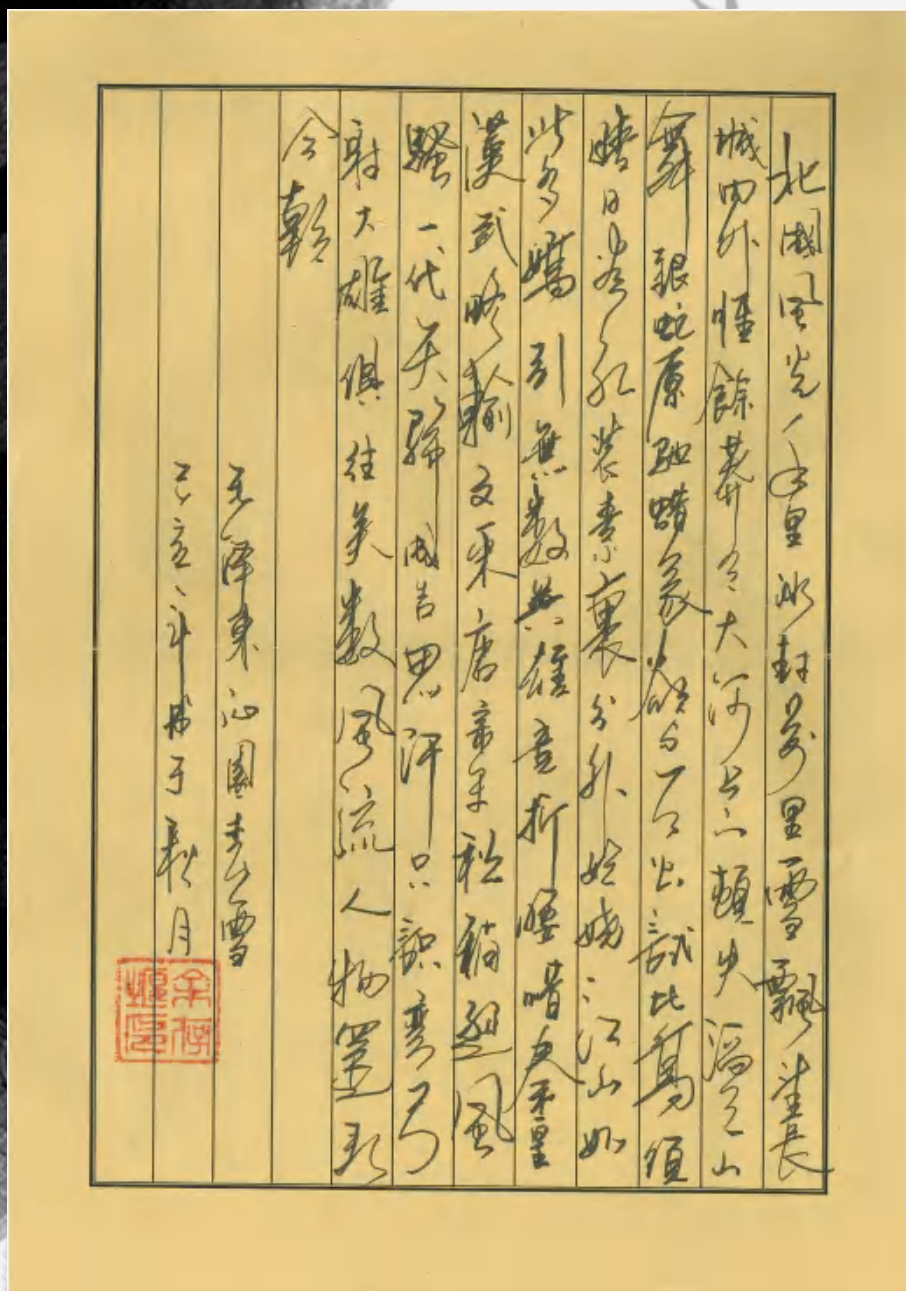 北國風光千里冰封萬里雪飄望長
城内外惟餘莽々大河上下頓失滔々山
舞銀蛇原馳蜡象欲与天公試比高須
晴日看紅裝素裹分外妖嬈江山如
此多嬌引無數英雄竞折腰惜秦皇
漢武略輸文采唐宗宋祖稍遜風
騷一代天驕成吉思汗只識彎弓
射大雕俱往矣數風流人物還看
今朝
毛澤東沁園春雪
己亥年于秋月